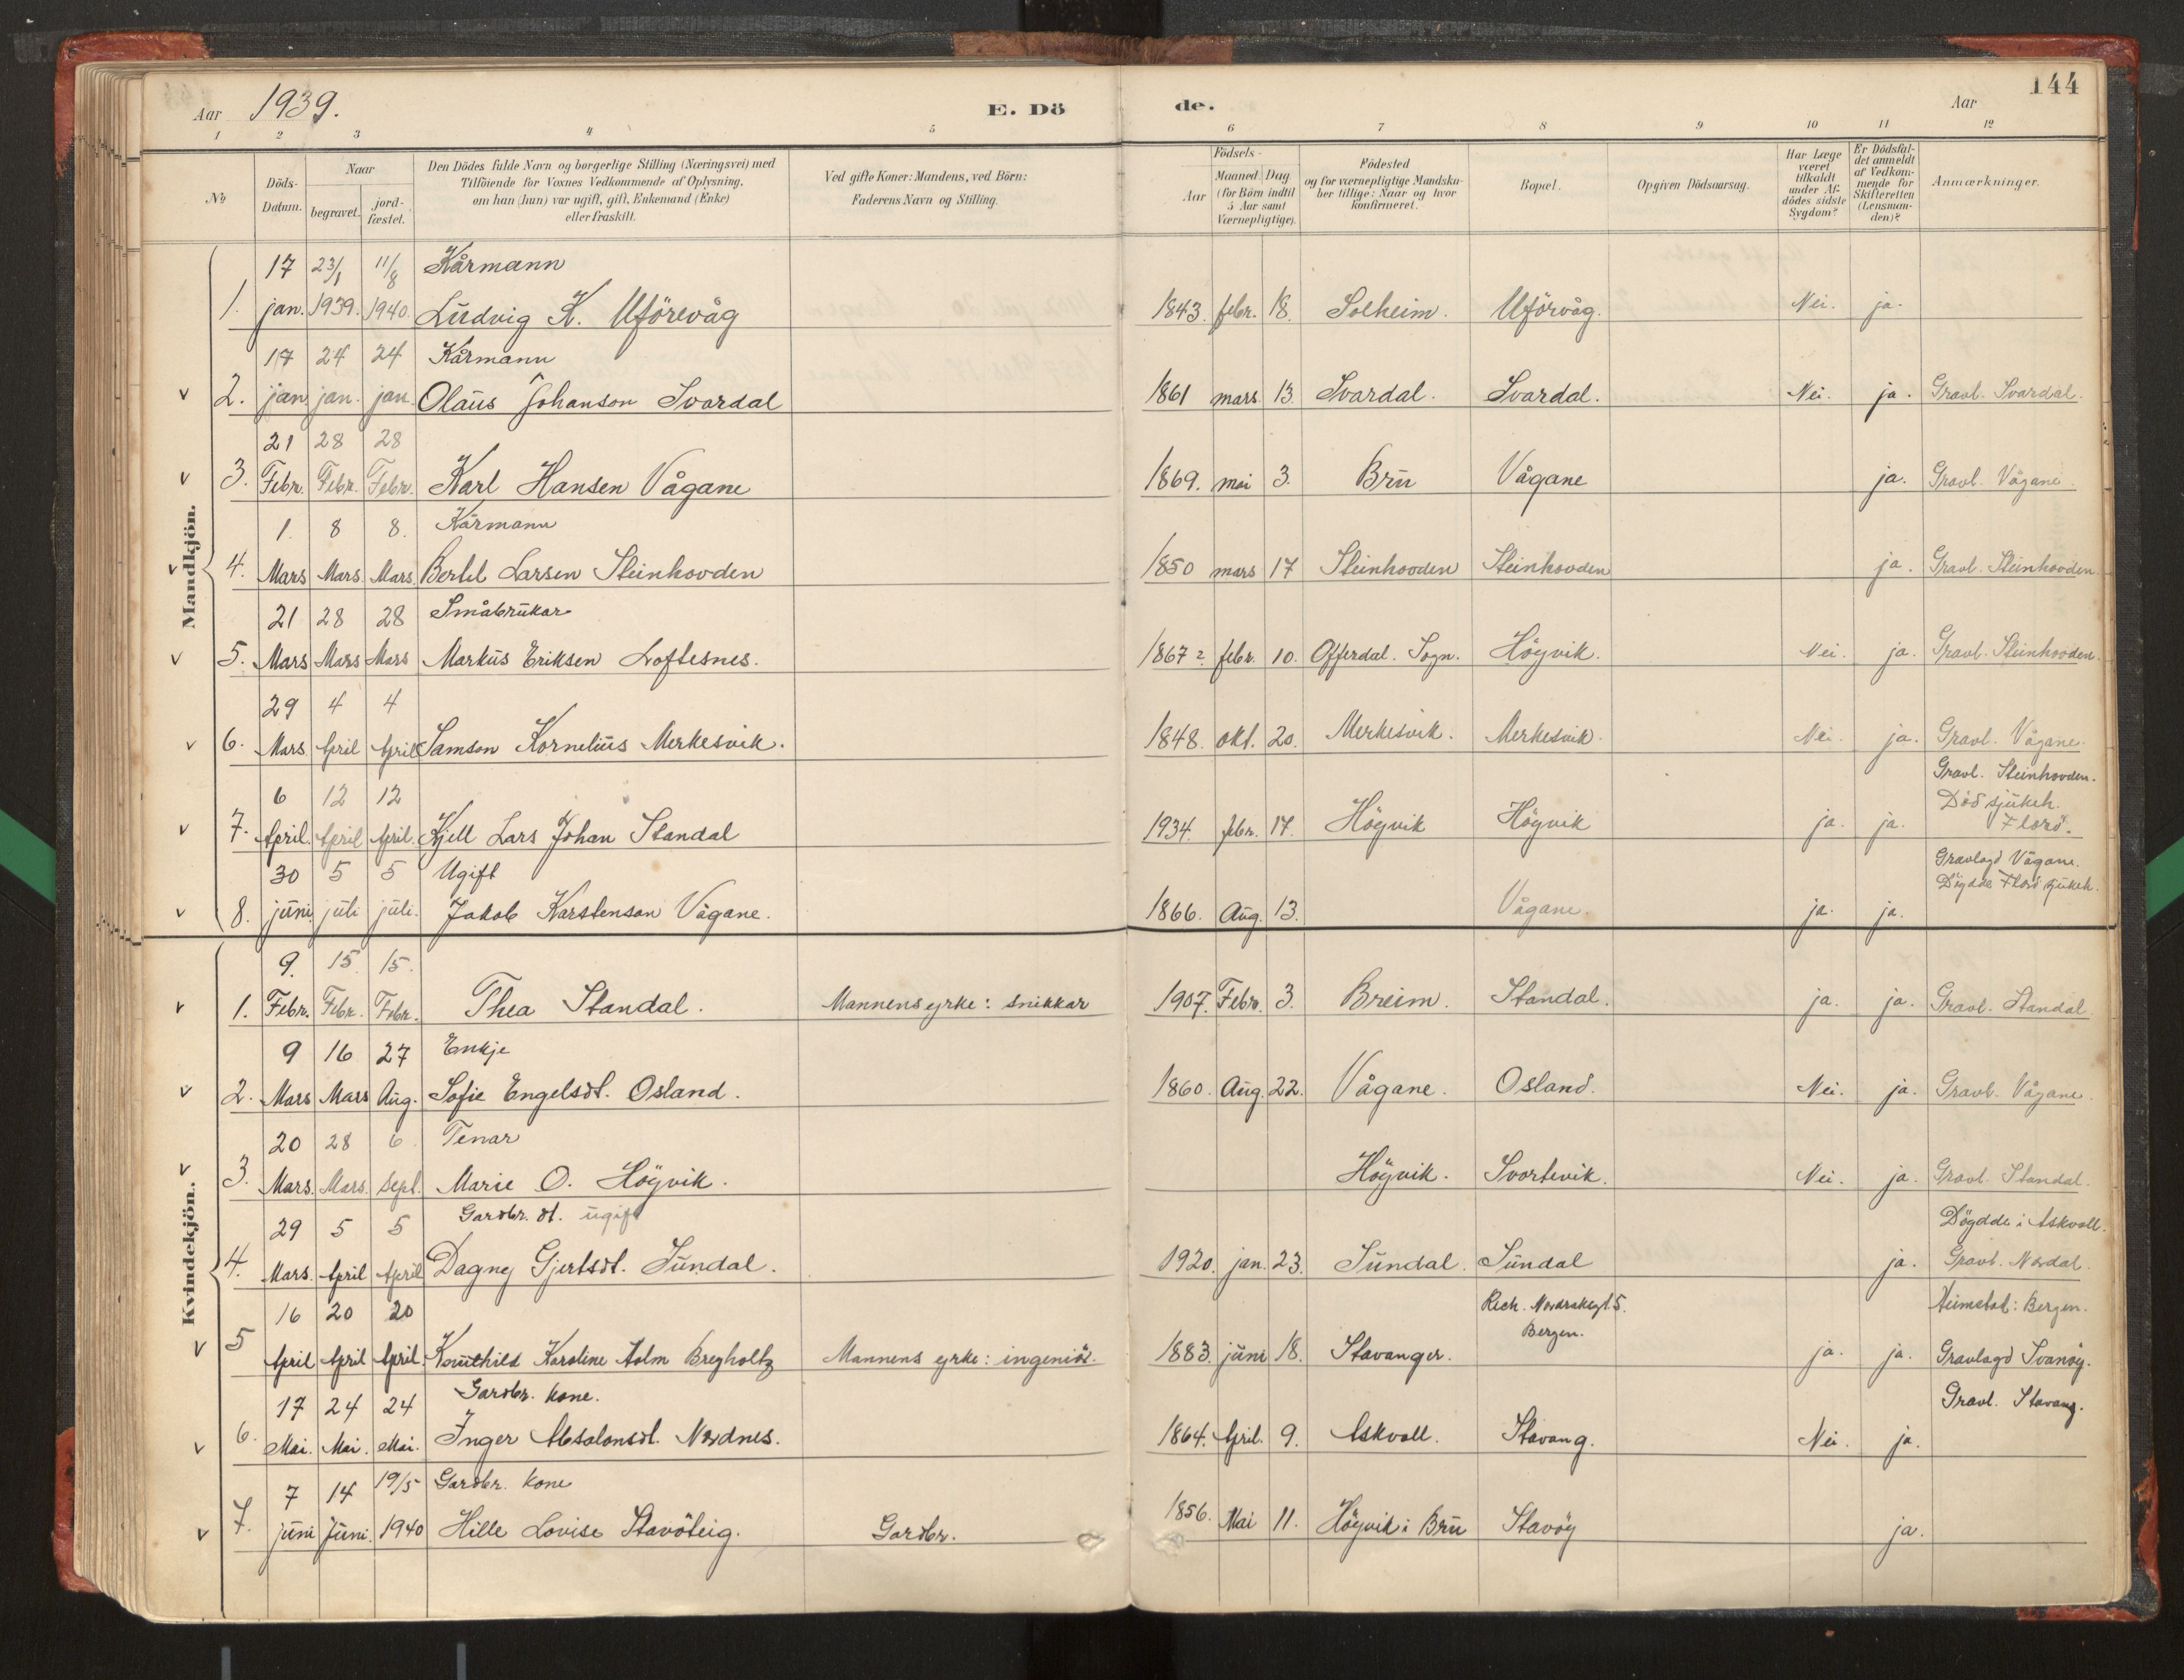 144
Aar 1939. E. Dö de. Aar
1 2 3 4 5 6 7 8 9 10 11 12
No
Döds-Datum.
Naar
begravet.
jord-fæstet.
Den Dödes fulde Navn og borgerlige Stilling (Næringsvei) med
Tilföiende for Voxnes Vedkommende af Oplysning,
om han (hun) var ugift, gift, Enkemand (Enke)
eller fraskilt.
Ved gifte Koner: Mandens, ved Börn:
Faderens Navn og Stilling.
Födsels-
Aar
Maaned. Dag.
(for Börn indtil
5 Aar samt
Værnepligtige).
Födested
og for værnepligtige Mandska-
ber tillige: Naar og hvor
konfirmeret.
Bopæl.
Opgiven Dödsaarsag.
Har Læge
været
tilkaldt
under Af-
dödes sidste
Sygdom?
Er Dödsfal-
det anmeldt
af Vedkom-
mende for
Skifteretten
(Lensman-
den)?
Anmærkninger.
Mandkjön.
17 23/1 11/8 Kårmann
1. jan. 1939. 1940. Ludvig K. Uförevåg 1843. febr. 18. Solheim. Uförvåg. Nei. ja.
17 24 24 Kårmann
v 2. jan. jan. jan. Olaus Johanson Svardal 1861 mars 13. Svardal. Svardal. Nei. ja. Gravl. Svardal.
21 28 28
v 3. Febr. Febr. Febr. Karl Hansen Vågane 1869. mai 3. Bru Vågane ja. Gravl. Vågane.
1. 8 8. Kårmann
v 4. Mars Mars. Mars. Bertel Larsen Steinhovden 1850 mars 17 Steinhovden Steinhovden ja. Gravl. Steinhovden.
21 28 28 Småbrukar
v 5. Mars Mars Mars Markus Eriksen Loftesnes. 1867? febr. 10. Offerdal. Sogn. Högvik. Nei. ja. Gravl. Steinhovden.
29 4 4
v 6. Mars April April Samson Kornelius Merkesvik. 1848. okt. 20. Merkesvik. Merkesvik. Nei. ja. Gravl. Vågane.
6 12 12 Gravl. Steinhovden.
Död sjukeh.
v 7. April. April April. Kjell Lars Johan Standal 1934. febr. 17. Högvik Högvik ja. ja. Florö.
30 5 5 Ugift Gravlagd Vågane.
Dögdde Florö sjukeh.
v 8. juni juli juli. Jakob Karstenson Vågane. 1866. Aug. 13. Vågane. ja. ja.
Kvindekjön.
9. 15 15.
v 1. Febr. Febr. Febr. Thea Standal. Mannens yrke: snikkar 1907. Febr. 3. Breim. Standal. ja. ja. Gravl. Standal
9 16 27 Enkje
v 2. Mars Mars Aug. Sofie Engelsdt. Osland. 1860. Aug. 22. Vågane. Osland. Nei. ja. Gravl. Vågane.
20 28 6 Tenar
v 3. Mars. Mars. Sept. Marie O. Högvik. Högvik. Svortevik. Nei. ja. Gravl. Standal.
29 5 5 Gardbr. dt. ugift Dögdde i Askvoll.
4. Mars. April April Dagny Gjertsdt. Sundal. 1920. jan. 23. Sundal. Sundal ja. Gravl. Nordal.
16 20 20 Rich. Nordraksgt. 5. Heimstad: Bergen.
Bergen.
v 5 April April April. Karoline Holm Bregholtz Mannens yrke: ingeniör. 1883. juni 18. Stavanger. ja. ja. Gravlagd Svanöy.
17 24 24 Gardbr. kone. Gravl. Stavang.
v 6. Mai. Mai. Mai. Inger Absalonsdt. Nordnes. 1864. April. 9. Askvoll. Stavang. Nei. ja.
7 14 19/5 Gardbr. kone
v 7. juni Juni. 1940 Hille Lovise Stavöteig. Gardbr. 1856. Mai 11. Högvik i Bru Stavöy ja.